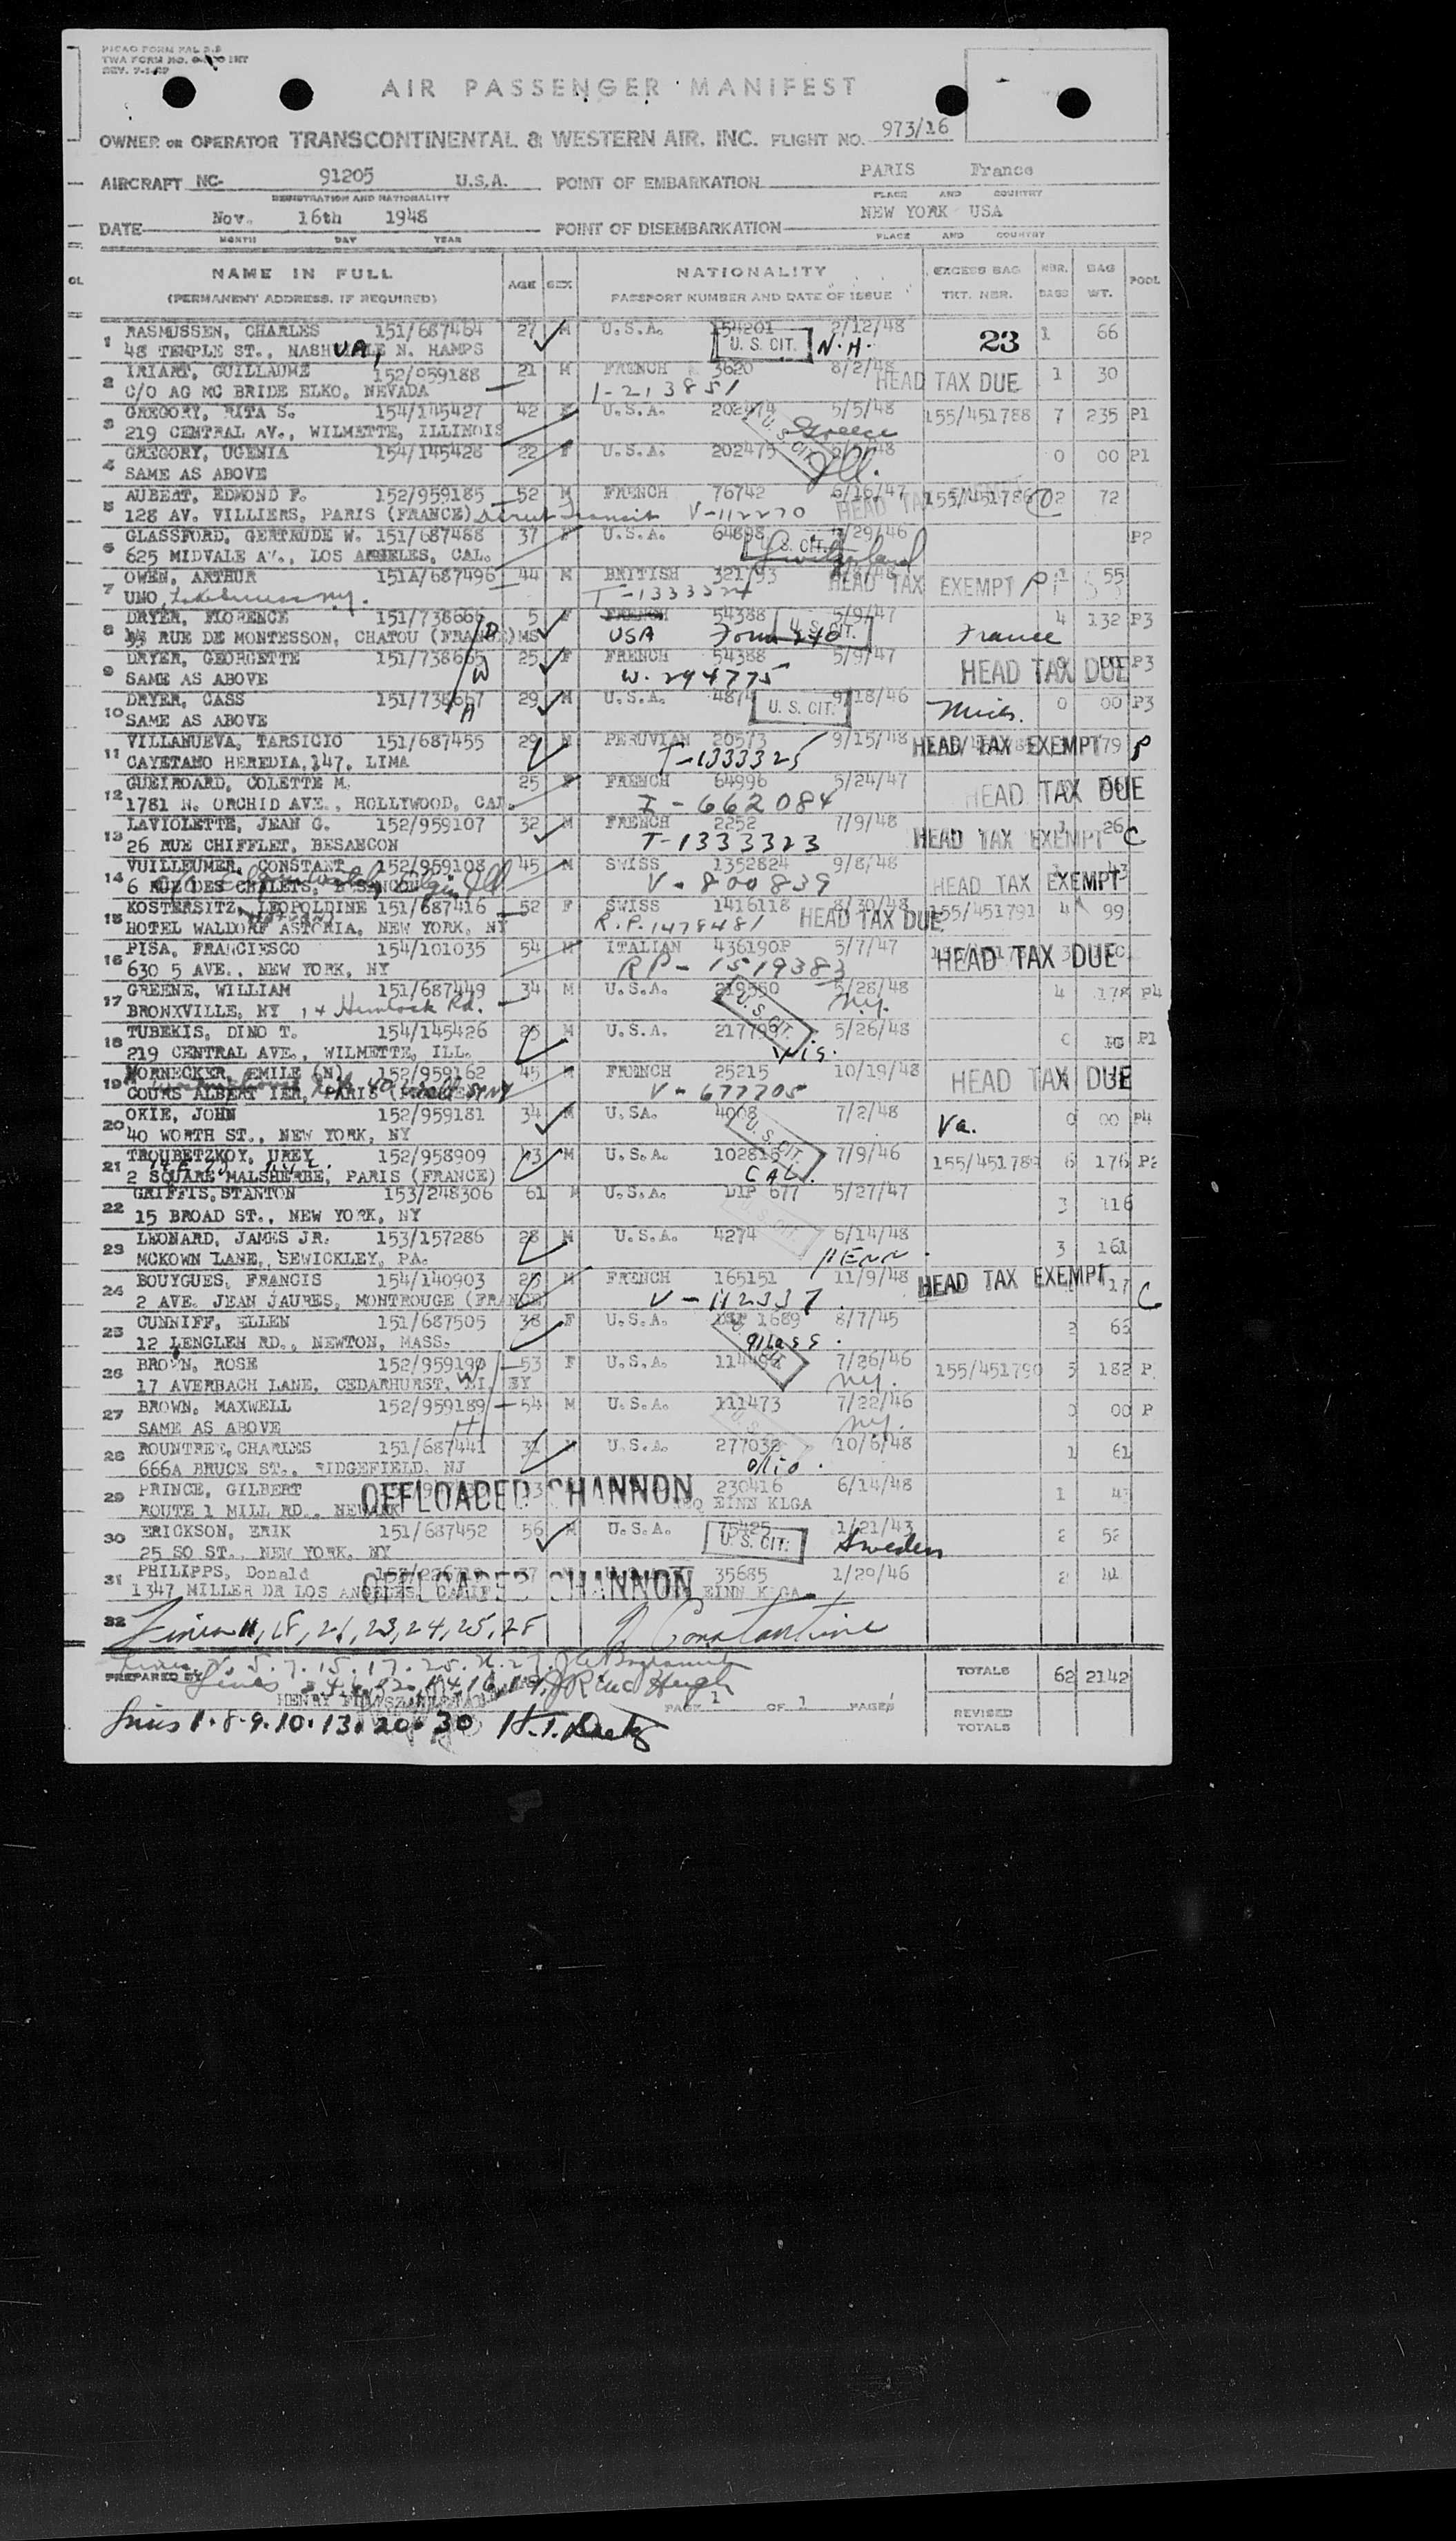 PICAO FORM PAL 2.2
AIR PASSENGER MANIFEST
OWNER OR OPERATOR TRANSCONTINENTAL & WESTERN AIR, INC. FLIGHT NO. 973/16
AIRCRAFT NC- 91205 U.S.A. POINT OF EMBARKATION PARIS France
REGISTRATION AND NATIONALITY PLACE AND COUNTRY
DATE Nov. 16th 1948 POINT OF DISEMBARKATION NEW YORK USA
MONTH DAY YEAR PLACE AND COUNTRY
NAME IN FULL AGE SEX NATIONALITY EXCESS BAG NBR. BAG POOL
(PERMANENT ADDRESS, IF REQUIRED) PASSPORT NUMBER AND DATE OF ISSUE TKT. NBR. BAGS WT.
1 RASMUSSEN, CHARLES 151/687464 27 M U.S.A. 154201 2/12/48 23 1 66
48 TEMPLE ST., NASHUA, N. HAMPS U.S. CIT. N.H.
2 IRIART, GUILLAUME 152/959188 21 M FRENCH 3620 8/2/48 HEAD TAX DUE 1 30
C/O AG MC BRIDE ELKO, NEVADA 1-213851
3 GREGORY, RITA S. 154/145427 42 F U.S.A. 202474 5/5/48 155/451788 7 235 P1
219 CENTRAL AV., WILMETTE, ILLINOIS U.S. CIT. Greece
4 GREGORY, UGENIA 154/145428 22 F U.S.A. 202475 0 00 P1
SAME AS ABOVE Ill.
5 AUBERT, EDMOND F. 152/959185 52 M FRENCH 76742 6/16/47 155/451786 2 72
128 AV. VILLIERS, PARIS (FRANCE) direct transit V-112270 HEAD TAX
6 GLASSFORD, GERTRUDE W. 151/687488 37 F U.S.A. 64898 /29/46 P2
625 MIDVALE AV., LOS ANGELES, CAL. U.S. CIT. Switzerland
7 OWEN, ARTHUR 151A/687496 44 M BRITISH 321793 HEAD TAX EXEMPT P 1 55
UNO Lake Success NY. T-1333324
8 DRYER, FLORENCE 151/738666 5 F FRENCH 54388 5/9/47 4 132 P3
RUE DE MONTESSON, CHATOU (FRANCE) MS USA Form 240 U.S. CIT. France
9 DRYER, GEORGETTE 151/738665 25 F FRENCH 54388 5/9/47 HEAD TAX DUE P3
SAME AS ABOVE W W-294775
10 DRYER, CASS 151/738667 29 M U.S.A. 4874 U.S. CIT. 9/18/46 Mich. 0 00 P3
SAME AS ABOVE H
11 VILLANUEVA, TARSICIO 151/687455 29 M PERUVIAN 20573 9/15/48 HEAD TAX EXEMPT 79 P
CAYETANO HEREDIA, 147, LIMA T-1333325
12 GUEIROARD, COLETTE M. 25 F FRENCH 64996 5/24/47 HEAD TAX DUE
1781 N. ORCHID AVE., HOLLYWOOD, CAL. I-662084
13 LAVIOLETTE, JEAN G. 152/959107 32 M FRENCH 2252 7/9/48 HEAD TAX EXEMPT 1 26 C
26 RUE CHIFFLET, BESANCON T-1333323
14 VUILLEUMER, CONSTANT 152/959108 45 M SWISS 1352824 9/8/48 HEAD TAX EXEMPT 43
6 RUE DES CHALETS, BESANCON c/o Elgin Watch, Elgin, Ill V-800839
15 KOSTERSITZ, LEOPOLDINE 151/687416 52 F SWISS 1416118 8/30/48 155/451791 4 99
HOTEL WALDORF ASTORIA, NEW YORK, NY R.P. 1478481 HEAD TAX DUE
16 PISA, FRANCIESCO 154/101035 54 M ITALIAN 436190P 5/7/47 HEAD TAX DUE
630 5 AVE., NEW YORK, NY RP-1519383
17 GREENE, WILLIAM 151/687449 34 M U.S.A. 219550 5/28/48 4 178 P4
BRONXVILLE, NY 14 Hemlock Rd. U.S. CIT. N.Y.
18 TUBEKIS, DINO T. 154/145426 25 M U.S.A. 217796 5/26/48 0 P1
219 CENTRAL AVE., WILMETTE, ILL. U.S. CIT. Wis.
19 HORNECKER, EMILE (N) 152/959162 45 M FRENCH 25215 10/19/48 HEAD TAX DUE
COURS ALBERT IER, PARIS 40 Wall St NY V-677705
20 OKIE, JOHN 152/959181 34 M U.SA. 4008 7/2/48 Va. 0 00 P4
40 WORTH ST., NEW YORK, NY U.S. CIT.
21 TROUBETZKOY, UREY 152/958909 43 M U.S.A. 102815 7/9/46 155/451789 6 176 P2
2 SQUARE MALSHERBE, PARIS (FRANCE) CAL.
22 GRIFFIS, STANTON 153/248306 61 M U.S.A. DIP 677 5/27/47 3 116
15 BROAD ST., NEW YORK, NY U.S. CIT.
23 LEONARD, JAMES JR. 153/157286 28 M U.S.A. 4274 6/14/48 3 161
MCKOWN LANE, SEWICKLEY, PA. PENN.
24 BOUYGUES, FRANCIS 154/140903 25 M FRENCH 165151 11/9/48 HEAD TAX EXEMPT 17 C
2 AVE. JEAN JAURES, MONTROUGE (FRANCE) V-112337
25 CUNNIFF, ELLEN 151/687505 38 F U.S.A. 1689 8/7/45 2 66
12 LENGLEN RD., NEWTON, MASS. Mass.
26 BROWN, ROSE 152/959190 53 F U.S.A. 7/26/46 155/451790 5 182 P
17 AVERBACH LANE, CEDARHURST, LI. NY W N.Y.
27 BROWN, MAXWELL 152/959189 54 M U.S.A. 111473 7/22/46 0 00 P
SAME AS ABOVE H N.Y.
28 ROUNTREE, CHARLES 151/687441 31 M U.S.A. 277032 10/6/48 1 61
666A BRUCE ST., RIDGEFIELD, NJ Ohio.
29 PRINCE, GILBERT OFFLOADED SHANNON 230416 6/14/48 1
ROUTE 1 MILL RD., NEWARK EINN KLGA
30 ERICKSON, ERIK 151/687452 56 M U.S.A. 75425 1/21/43 2 52
25 SO ST., NEW YORK, NY U.S. CIT. Sweden
31 PHILIPPS, Donald 37 OFFLOADED SHANNON 35685 1/20/46 2
1347 MILLER DR LOS ANGELES, CALIF EINN KLGA
32 Lines 11, 18, 21, 23, 24, 25, 28 Constantine
PREPARED BY Lines TOTALS 62 2142
HENRY PAGE 1 OF 1 PAGES
REVISED TOTALS
Lines 1.8.9.10.13.20.30 H.T.